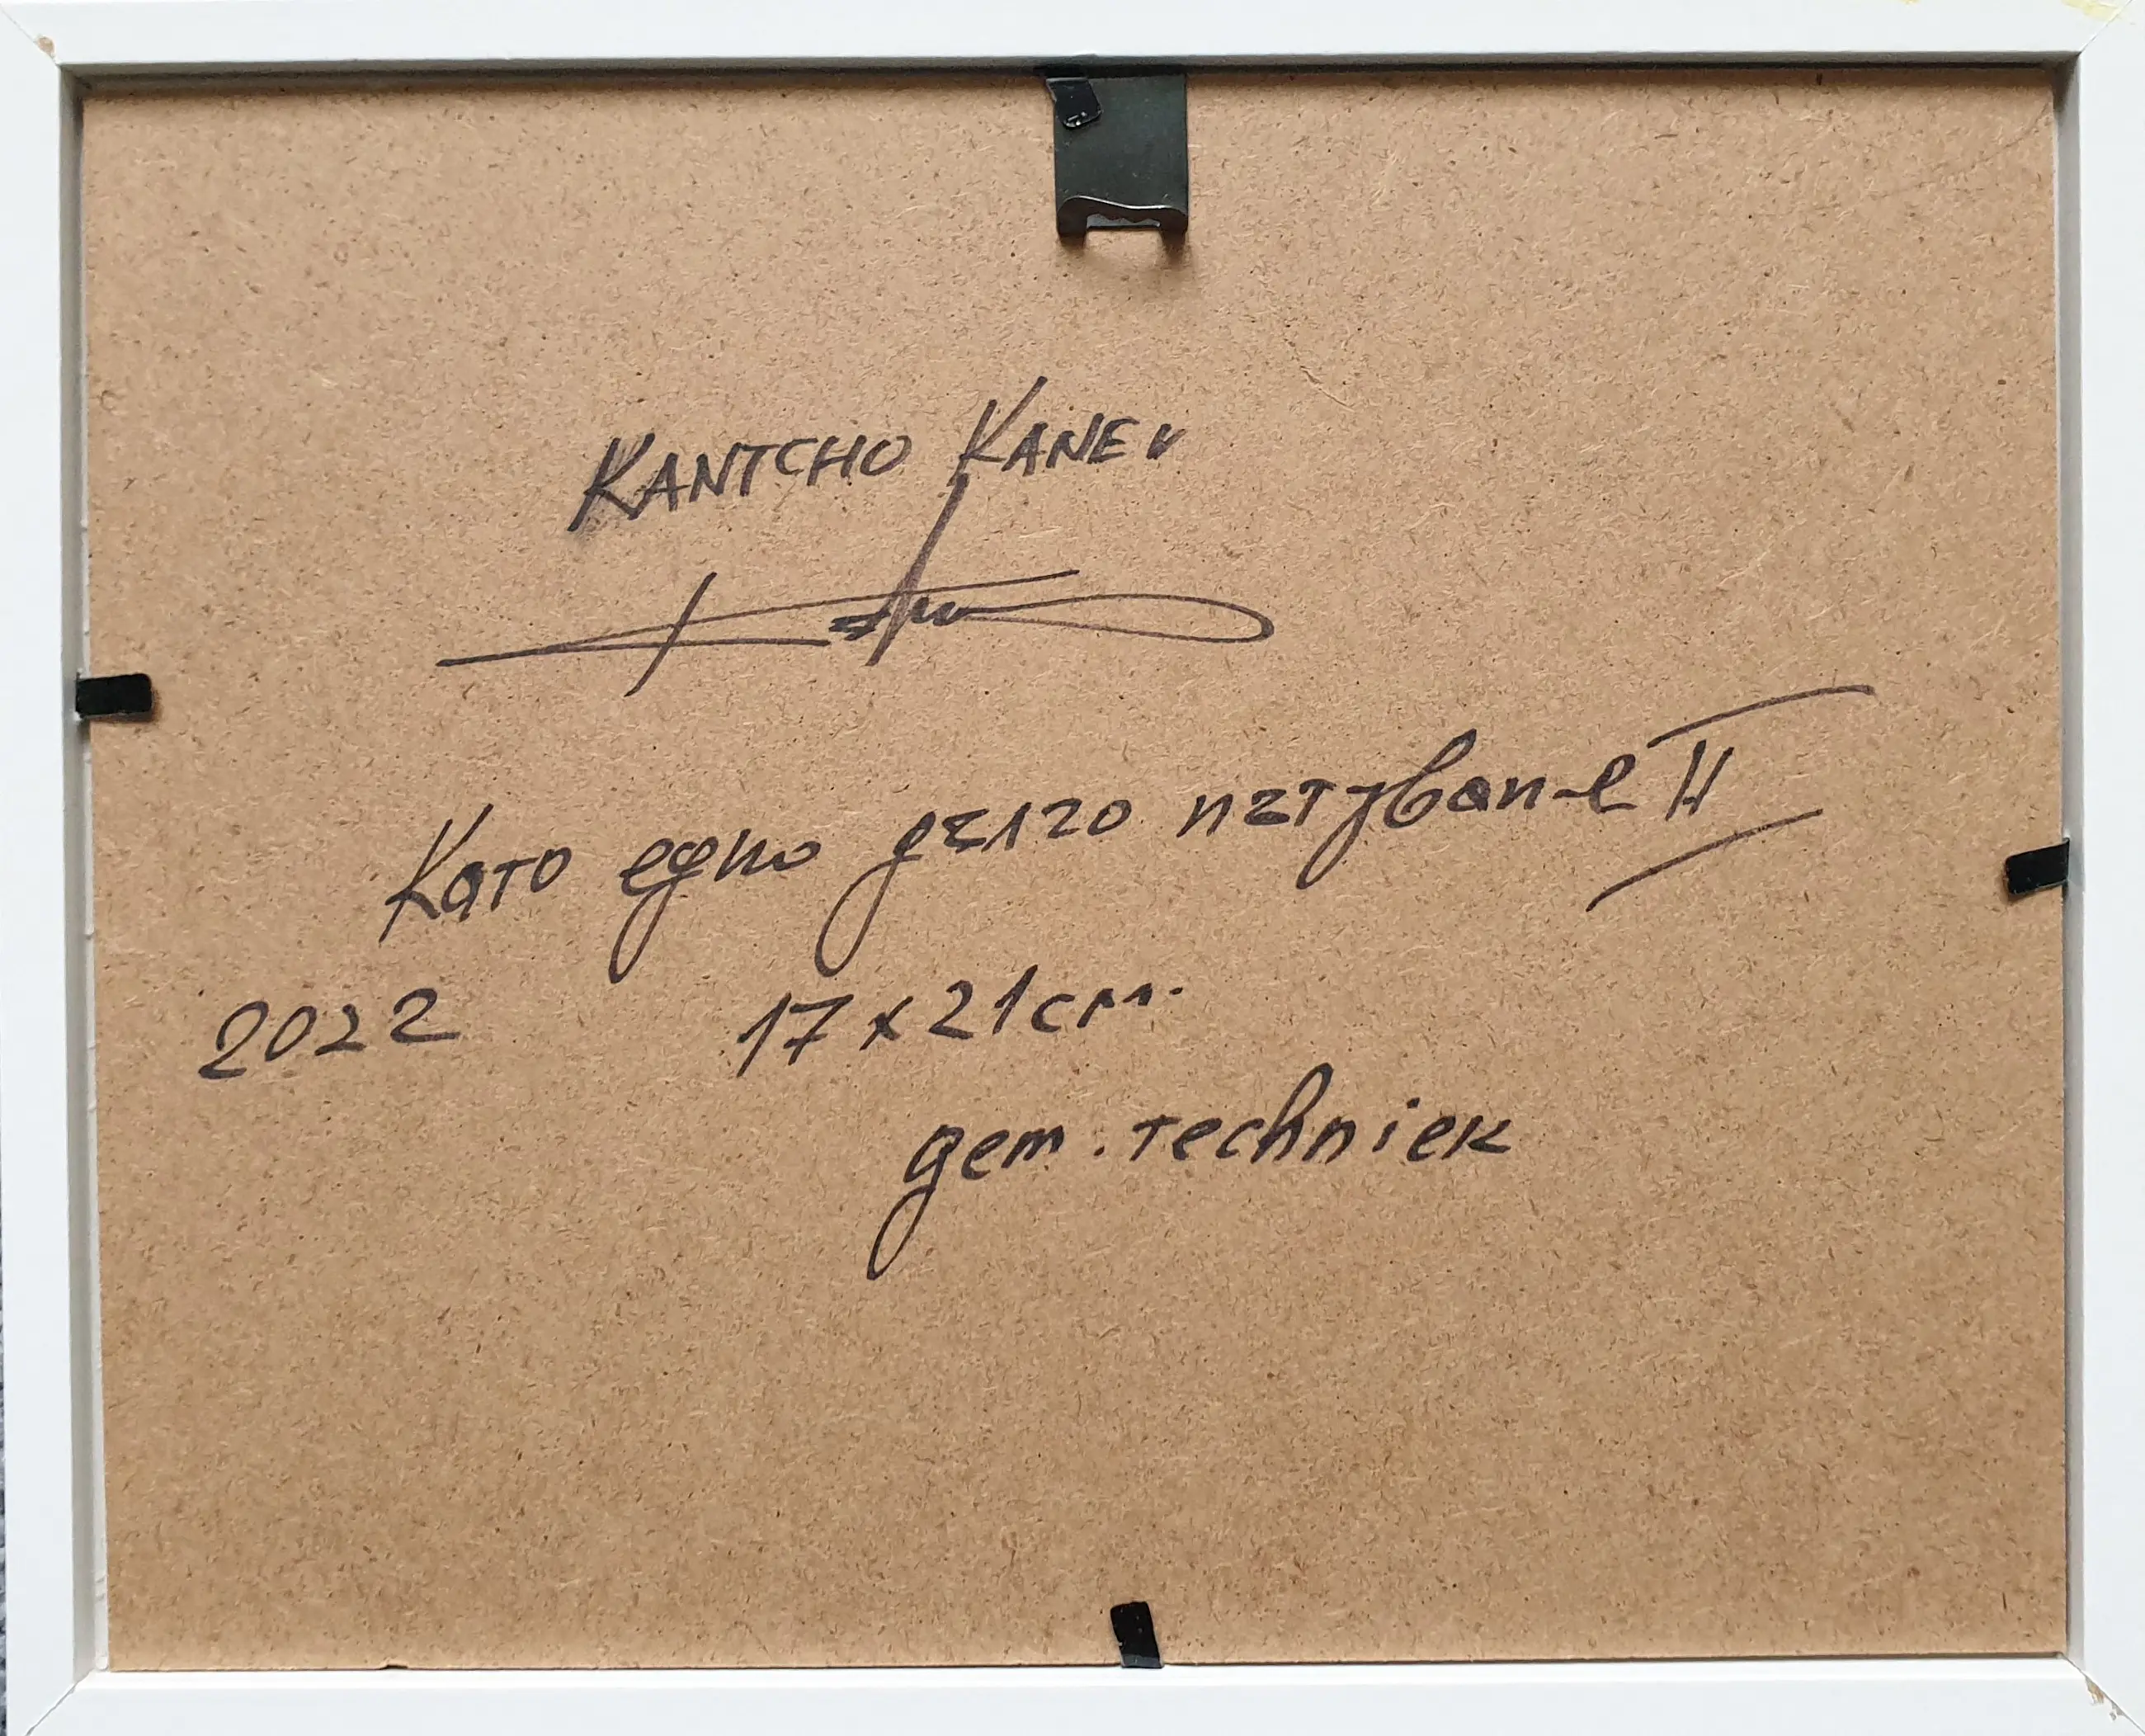 KANTCHO KANEV
Като едно дълго пътуван-е II
2022 17x21cm.
gem. techniek